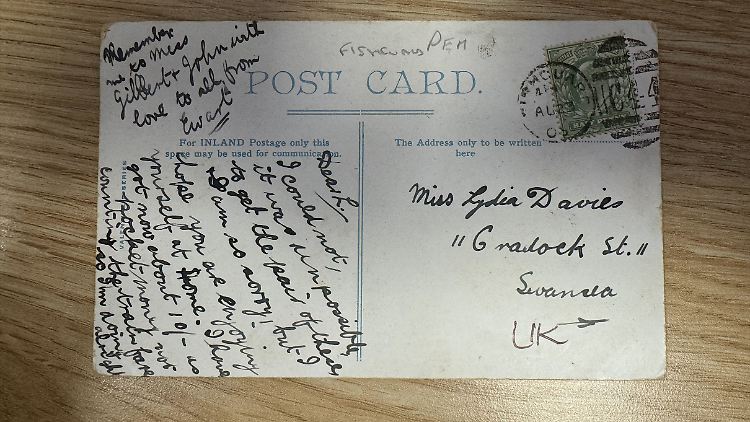 Remember
me to Miss
Gilbert & John with
love to all from
Ewart
FISHGUARD PEM
POST CARD.
For INLAND Postage only this
space may be used for communication.
The Address only to be written
here
Dear L,
I could not,
it was impossible,
to get the pair of these
I am so sorry, but I
hope you are enjoying
yourself at home. I have
got now about 10/- as
pocket money not
counting the train fare
so I'm doing
alright
SERIES
AU
Miss Lydia Davies
11 Cradock St.
Swansea
UK